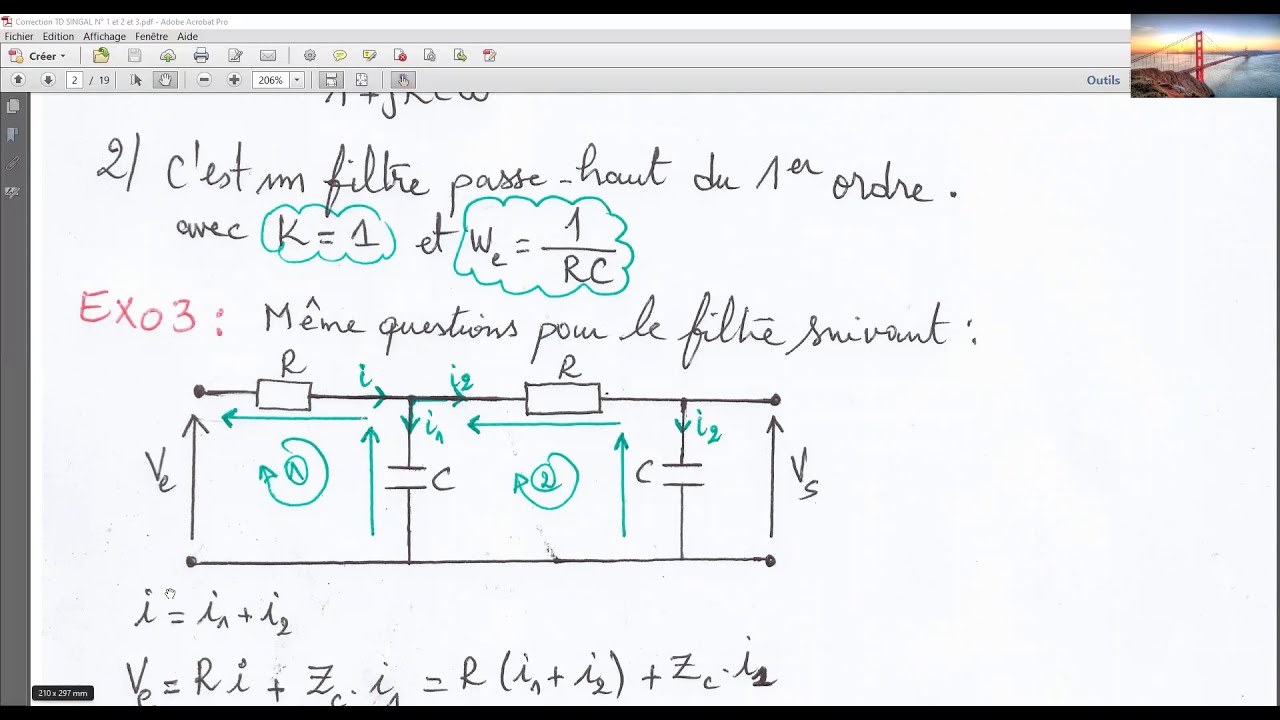 Correction TD SINGAL N° 1 et 2 et 3.pdf - Adobe Acrobat Pro
Fichier Edition Affichage Fenêtre Aide
Créer
2 / 19 206% Outils
1+jRCW
2) C'est un filtre passe-haut du 1er ordre.
avec K=1 et We = 1
RC
EXO3: Même questions pour le filtre suivant:
R i i2 R
i1 i2
Ve 1 C 2 C Vs
i = i1 + i2
Ve = Ri + Zc.i1 = R(i1+i2) + Zc.i1
210 x 297 mm